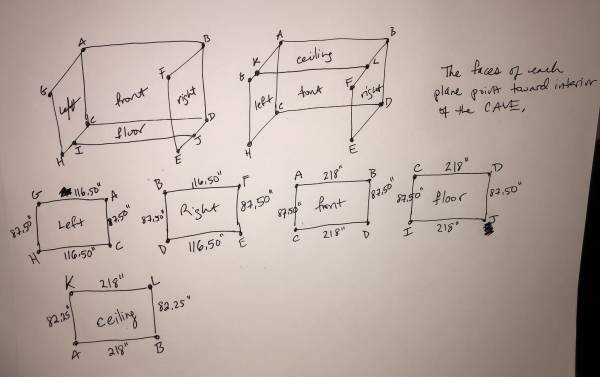 A B
G F
left front right
C D
floor J
H I E
A B
K ceiling L
G F
left front right
C D
H E
The faces of each
plane point toward interior
of the CAVE.
G 116.50" A
87.50" Left 87.50"
H 116.50" C
B 116.50" F
87.50" Right 87.50"
D 116.50" E
A 218" B
87.50" front 87.50"
C 218" D
C 218" D
87.50" floor 87.50"
I 218" J
K 218" L
82.25" ceiling 82.25"
A 218" B